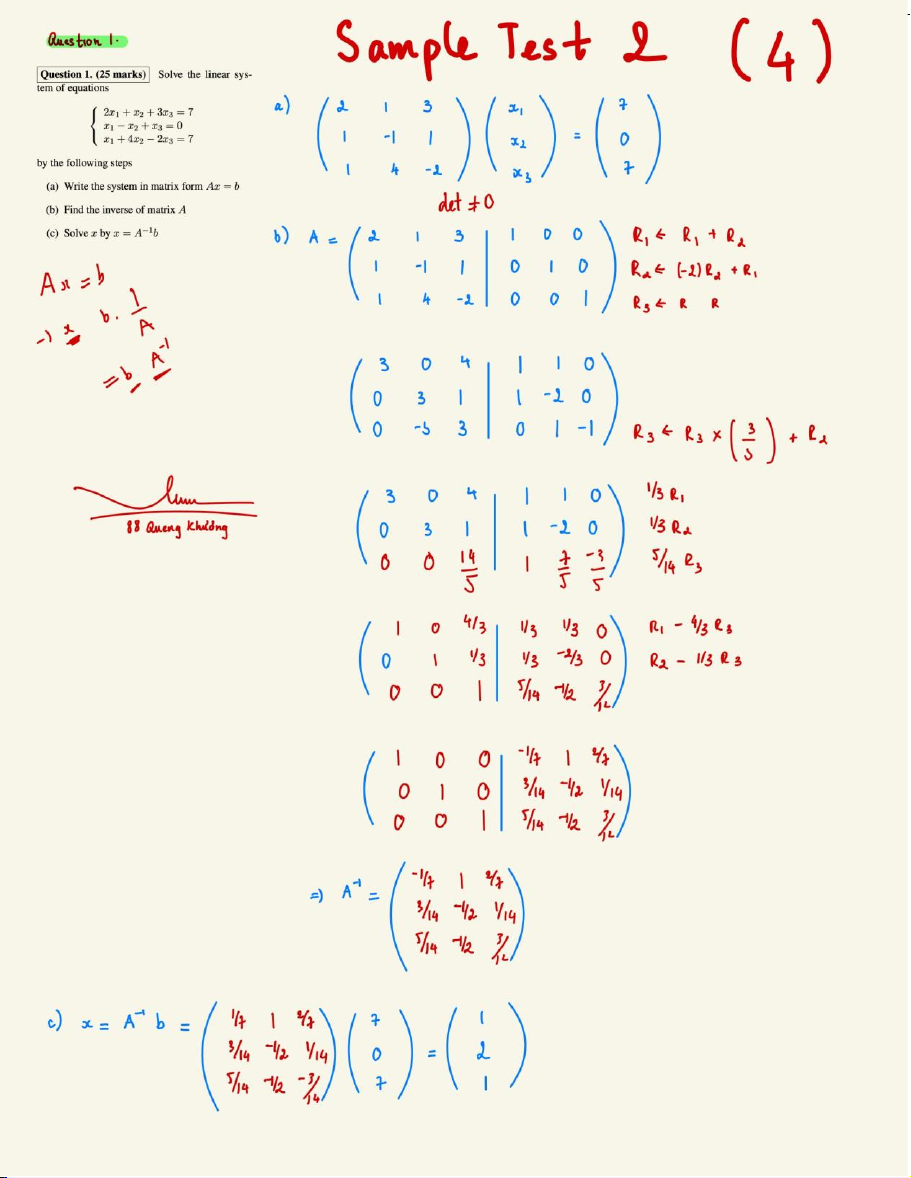 Question 1.
Sample Test 2 (4)
Question 1. (25 marks) Solve the linear sys-
tem of equations
2x₁ + x₂ + 3x₃ = 7
x₁ − x₂ + x₃ = 0
x₁ + 4x₂ − 2x₃ = 7
by the following steps
(a) Write the system in matrix form Ax = b
(b) Find the inverse of matrix A
(c) Solve x by x = A⁻¹b
Ax = b
-) x b. 1/A
= b A⁻¹
88 Quang Khương
a) ( 2 1 3 ) ( x₁ ) ( 7 )
( 1 -1 1 ) ( x₂ ) = ( 0 )
( 1 4 -2 ) ( x₃ ) ( 7 )
det ≠ 0
b) A = ( 2 1 3 | 1 0 0 ) R₁ ← R₁ + R₂
( 1 -1 1 | 0 1 0 ) R₂ ← (-2) R₂ + R₁
( 1 4 -2 | 0 0 1 ) R₃ ← R R
( 3 0 4 | 1 1 0 )
( 0 3 1 | 1 -2 0 )
( 0 -5 3 | 0 1 -1 ) R₃ ← R₃ × (3/5) + R₂
( 3 0 4 | 1 1 0 ) 1/3 R₁
( 0 3 1 | 1 -2 0 ) 1/3 R₂
( 0 0 14/5 | 1 7/5 -3/5 ) 5/14 R₃
( 1 0 4/3 | 1/3 1/3 0 ) R₁ - 4/3 R₃
( 0 1 1/3 | 1/3 -2/3 0 ) R₂ - 1/3 R₃
( 0 0 1 | 5/14 -1/2 )
( 1 0 0 | -1/7 1 2/7 )
( 0 1 0 | 3/14 -1/2 1/14 )
( 0 0 1 | 5/14 -1/2 )
=) A⁻¹ = ( -1/7 1 2/7 )
( 3/14 -1/2 1/14 )
( 5/14 -1/2 )
c) x = A⁻¹ b = ( 1/7 1 2/7 ) ( 7 ) ( 1 )
( 3/14 -1/2 1/14 ) ( 0 ) = ( 2 )
( 5/14 -1/2 -3/14 ) ( 7 ) ( 1 )